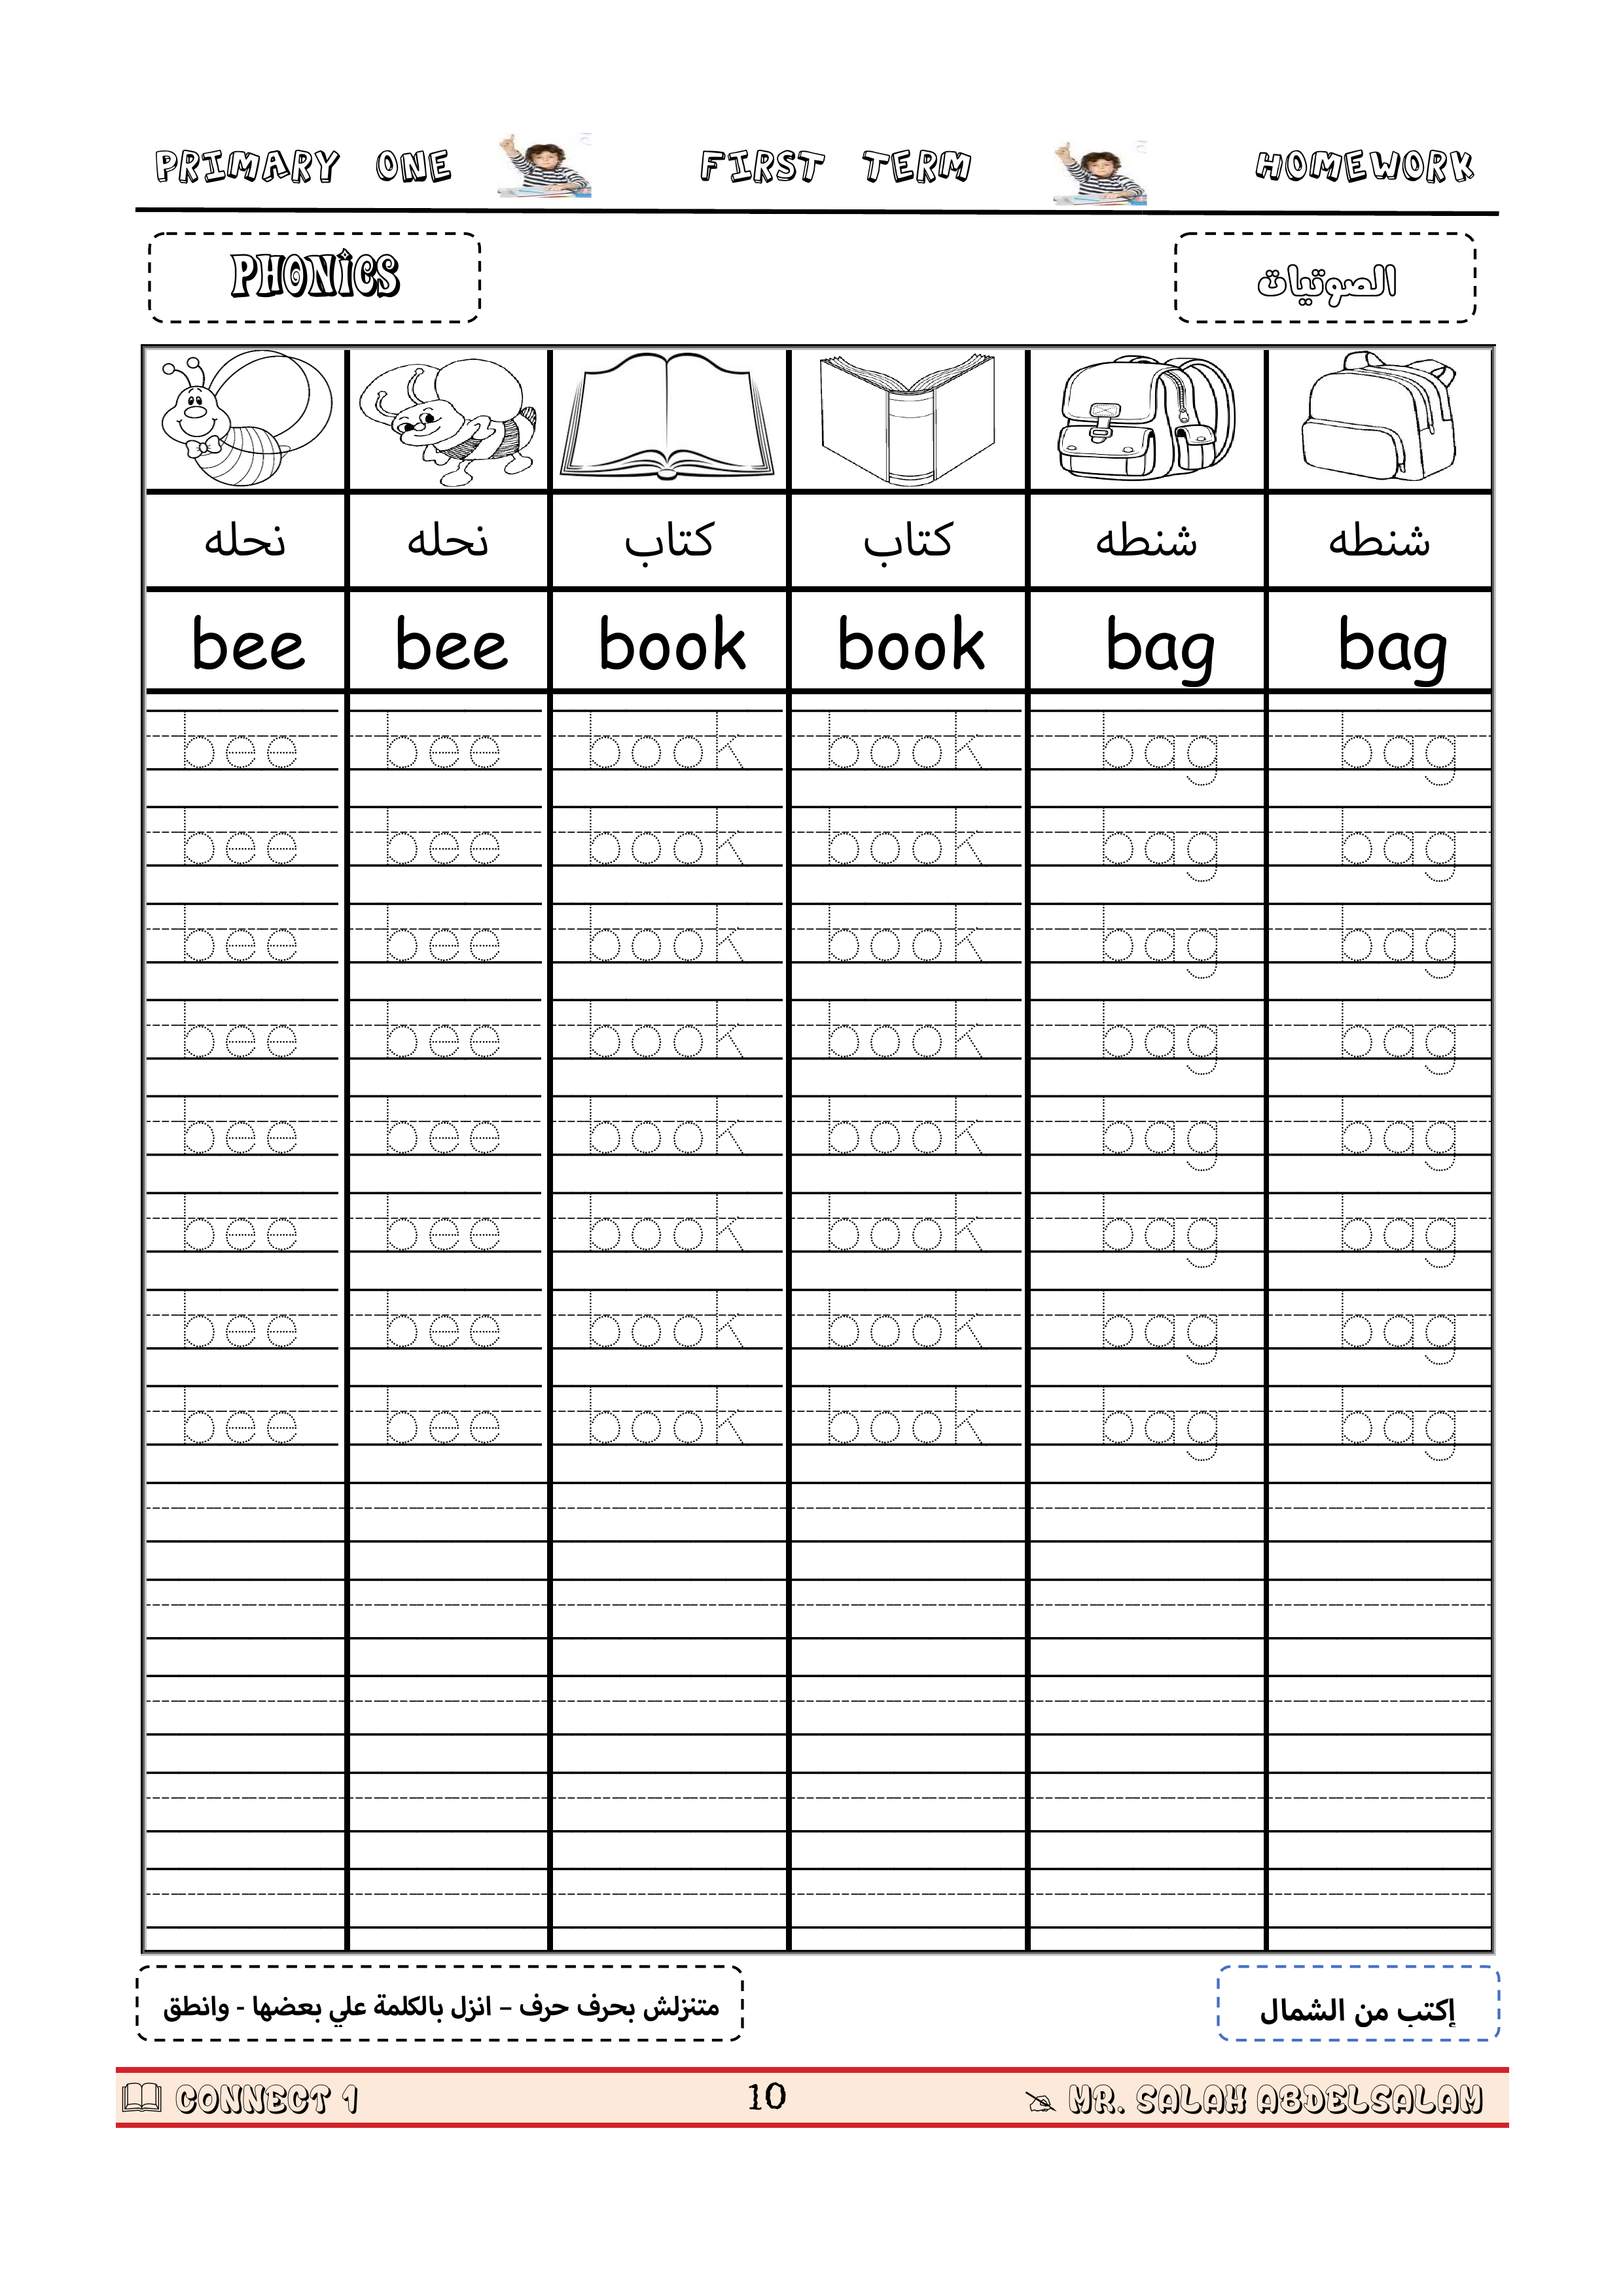 PRIMARY ONE FIRST TERM HOMEWORK
PHONICS الصوتيات
نحله نحله كتاب كتاب شنطه شنطه
bee bee book book bag bag
bee bee book book bag bag
bee bee book book bag bag
bee bee book book bag bag
bee bee book book bag bag
bee bee book book bag bag
bee bee book book bag bag
bee bee book book bag bag
bee bee book book bag bag
متنزلش بحرف حرف – انزل بالكلمة علي بعضها - وانطق
إكتب من الشمال
CONNECT 1 10 MR. SALAH ABDELSALAM